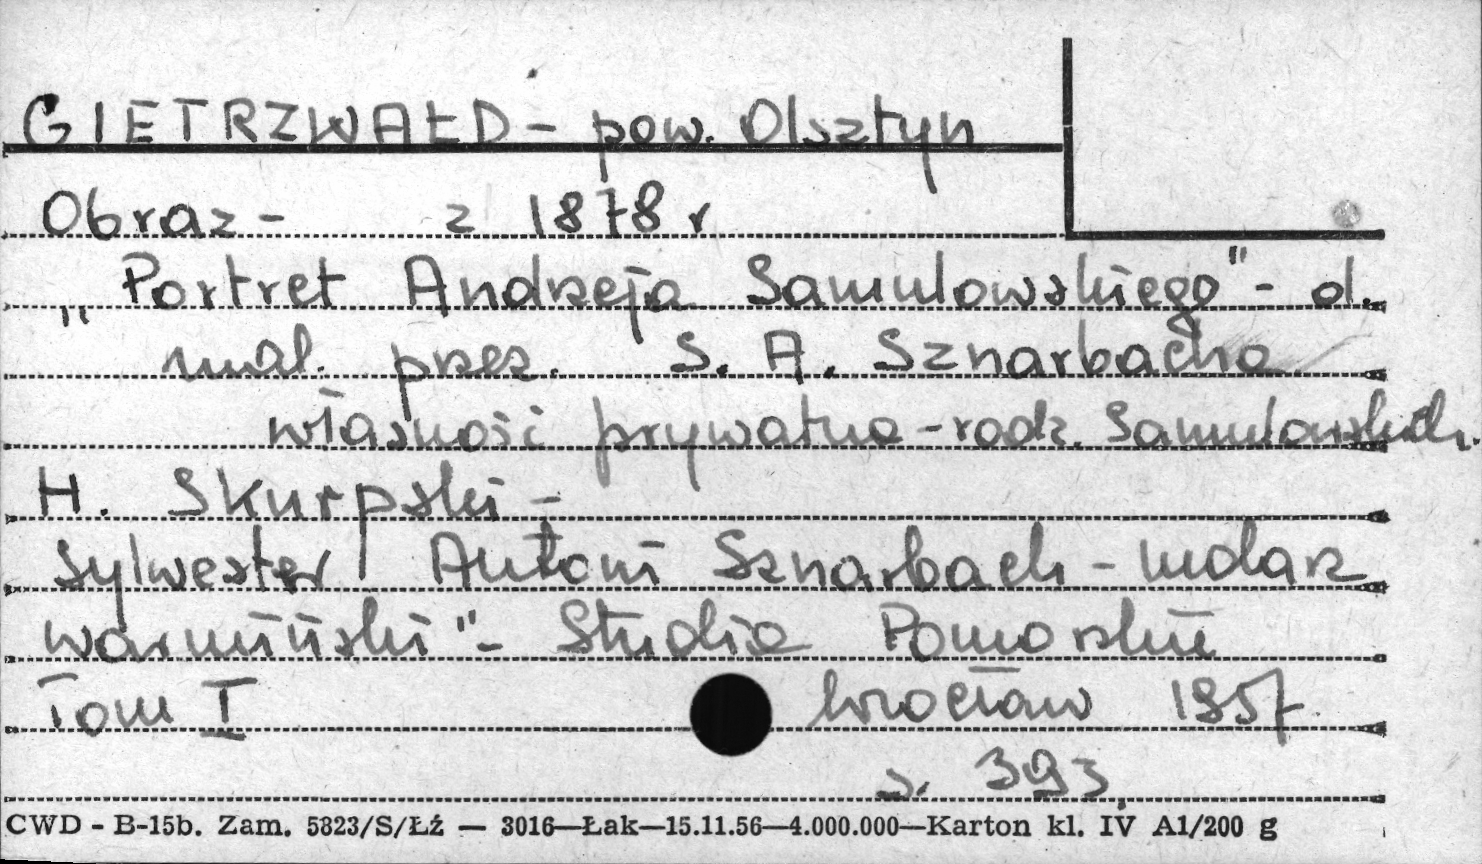 GIETRZWAŁD - pow. Olsztyn
Obraz - z 1878 r
"Portret Andrzeja Samulowskiego" - d.
mal. przez. S. A. Sznarbacha
własność prywatna - rodz. Samulowskich.
H. Skurpski -
Sylwester Antoni Sznarbach - malarz
warmiński" - Studia Pomorskie
Tom I Wrocław 1957
s. 393
CWD - B-15b. Zam. 5823/S/Łź — 3016—Łak—15.11.56—4.000.000—Karton kl. IV A1/200 g